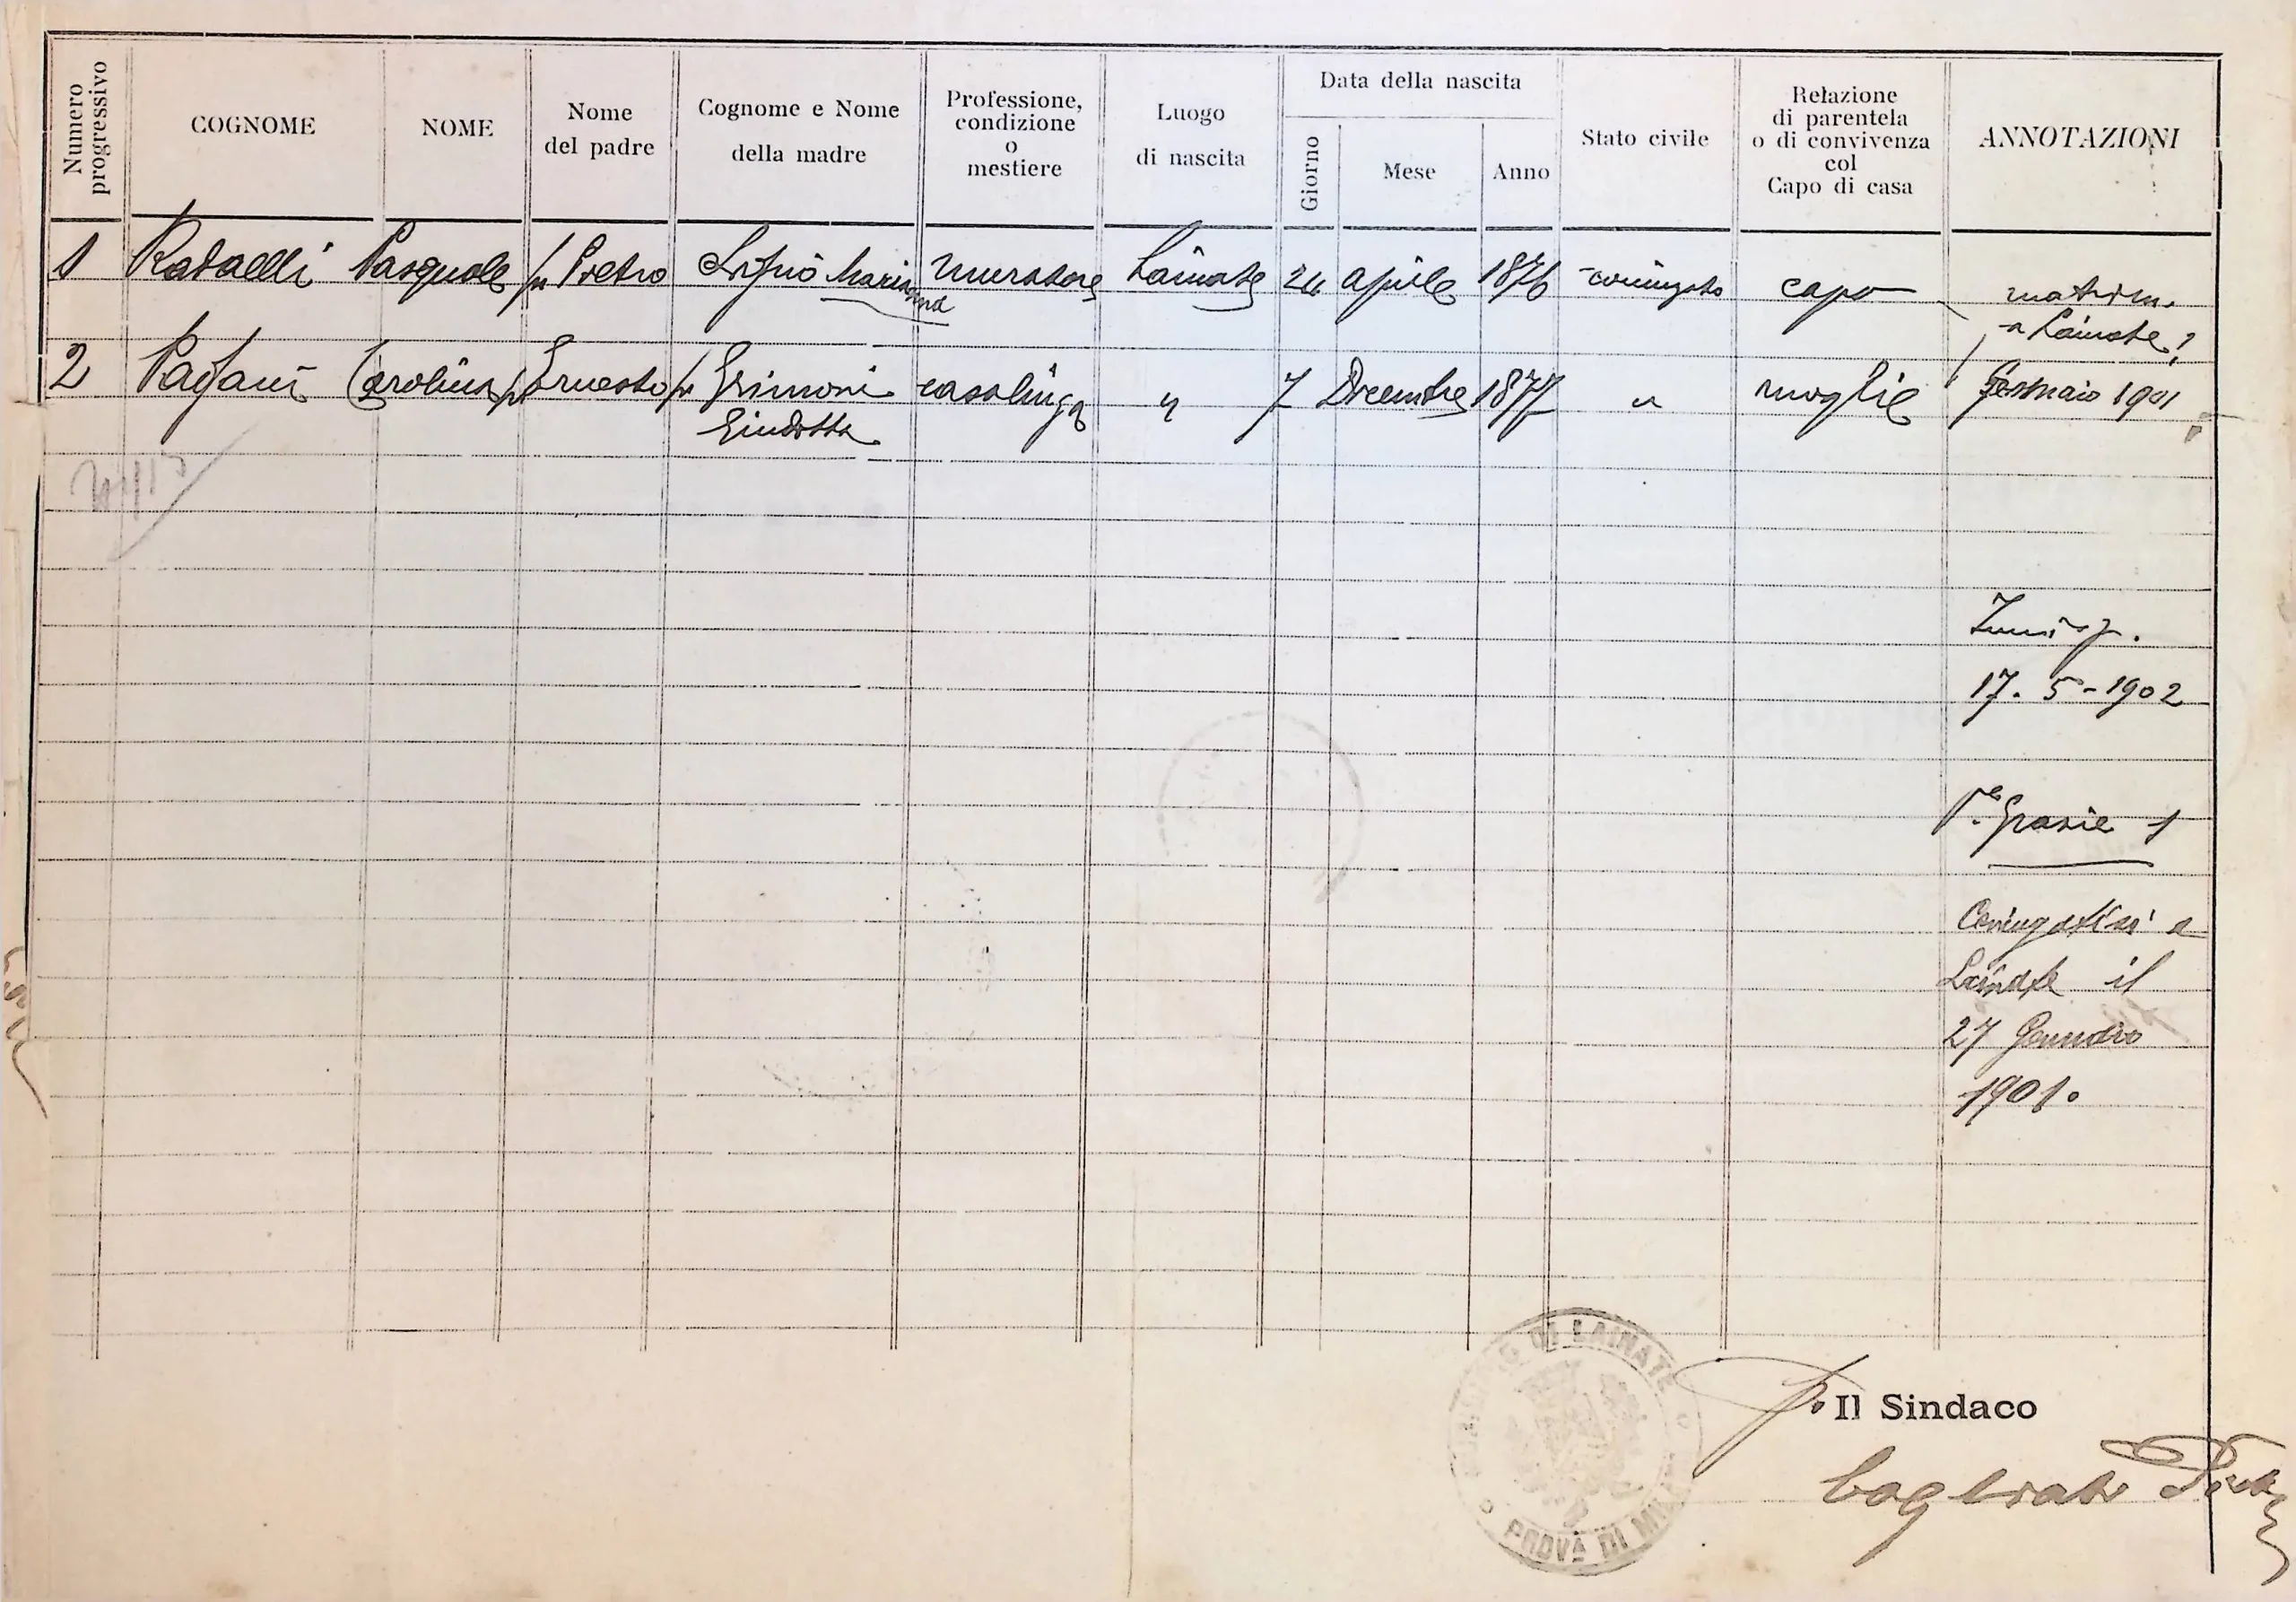 Numero progressivo
COGNOME
NOME
Nome del padre
Cognome e Nome della madre
Professione, condizione o mestiere
Luogo di nascita
Data della nascita
Giorno
Mese
Anno
Stato civile
Relazione di parentela o di convivenza col Capo di casa
ANNOTAZIONI
1 Pasquale fu Pietro Marianna muratore Lainate 24 aprile 1876 coniugato capo matrim.
a Lainate?
2 Pagani Carolina fu Ernesto fu Grimoni casalinga " 7 Dicembre 1877 " moglie Gennaio 1901
Giuditta
17. 5-1902
Grazie 1
Coniugatisi a
Lainate il
27 Gennaio
1901.
DI LAINATE
PROV. DI MILANO
p. Il Sindaco